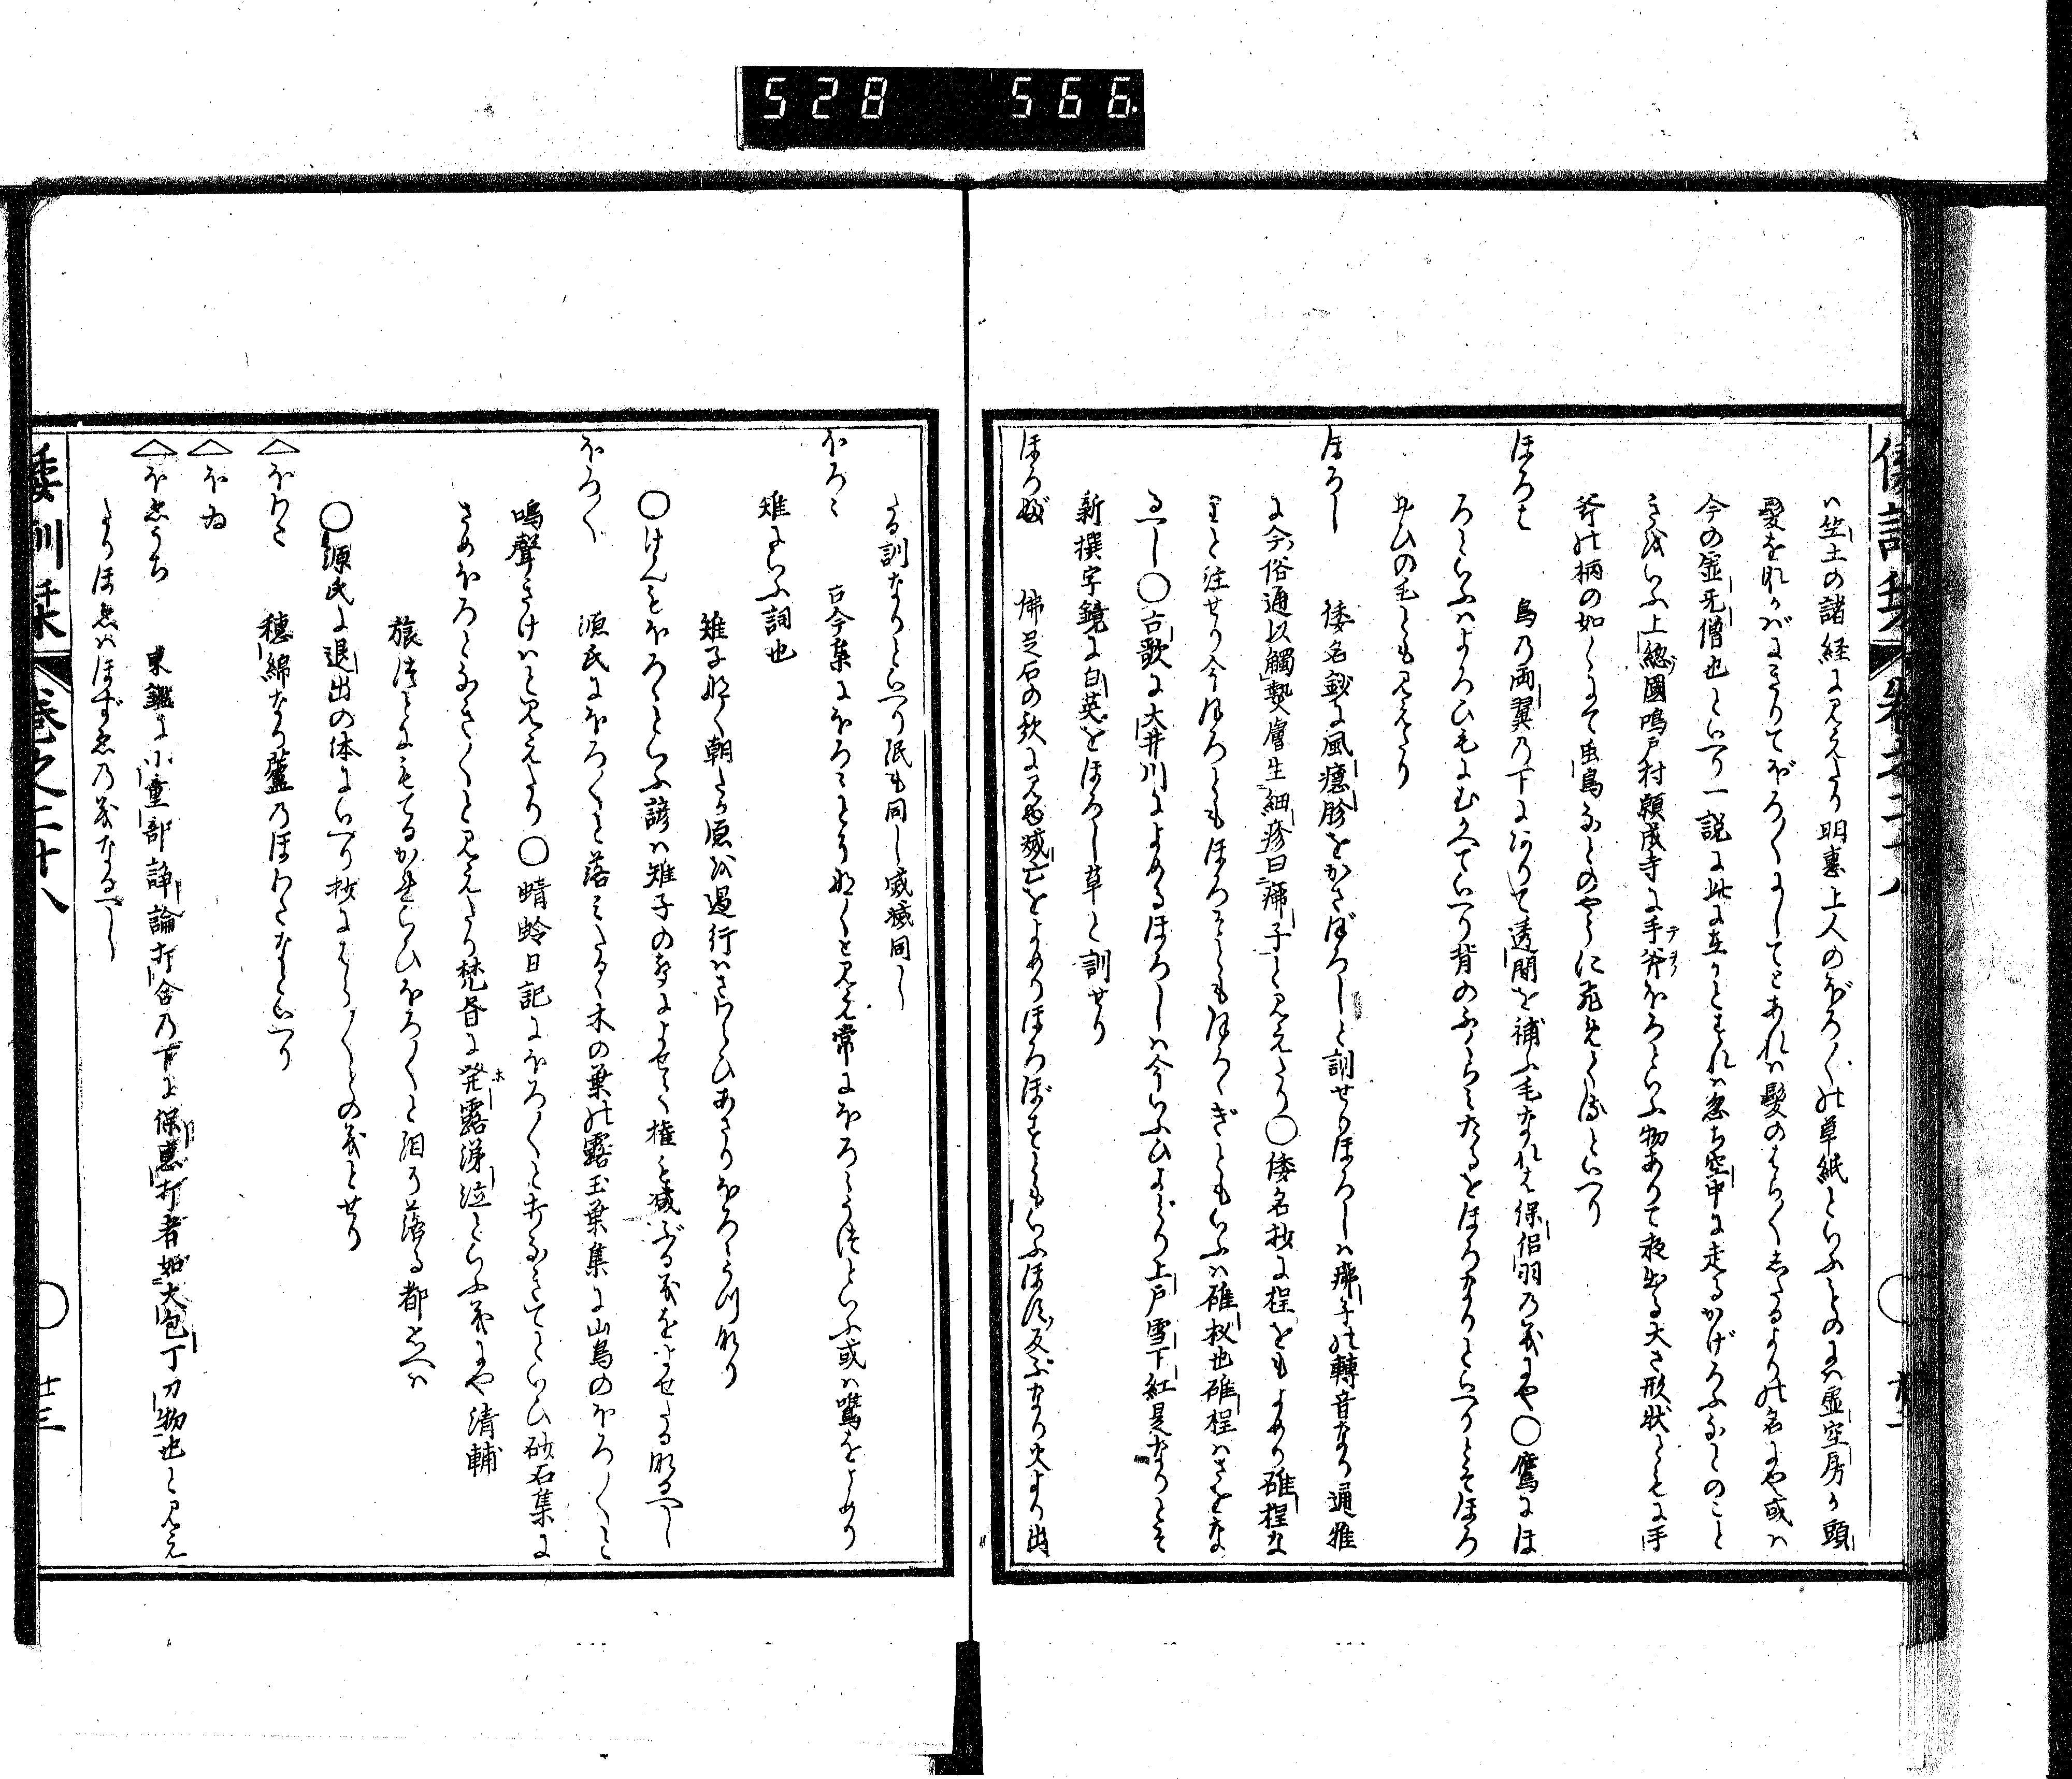 528 566
倭訓栞 巻之二十八
ハ笠土の諸経に見えたり明恵上人のぼろ〳〵の草紙といふものにハ虚空房ハ頭
髪をわがばきりてぼろ〳〵にしてとあれハ髪のはら〳〵したるよりの名にや或ハ
今の虚旡僧也といへり一説に此に在かとすれハ忽ち空中に走るかげろふなとのこと
きをいふ上總國鳴戸村願成寺に手斧ほろといふ物ありて夜出る大さ形状ともに手
斧の柄の如くにて虫鳥なとのやうに飛めくるといへり
ほろは 鳥の両翼の下にありて透間を補ふ毛なれは保侶羽の義にや○鷹にほ
ろといふハよろひ毛にむかへていへり背のふくらみたるをほろなりといへりとそほろ
おひの毛とも見えたり
ほろし 倭名鈔に風癮胗をかさぼろしと訓せりほろしハ疿子の轉音なり通雅
に今俗通以觸熱膚生細疹曰疿子と見えたり○倭名抄に桎をもよめり碓桎な
りと注せり今ほろともほろそともほろゝぎともいふハ碓杈也碓桎ハさをな
るへし○古歌に大井川によめるほろしハ今いふひよどり上戸雪下紅是なりとそ
新撰字鏡に白英をほろし草と訓せり
ほろぶ 佛足石の歌に見ゆ滅亡をよめりほろぼすともいふほは反ぶなり火より出
たる訓なりといへり泯も同し威滅同し
ほろゝ 古今集にほろゝとそ鳴くと見え常にほろゝうつといふ或ハ鷕をよめり
雉にいふ詞也
雉子鳴く朝たの原を過行ハさわたひあさりほろゝうつ也
○けんもほろゝといふ諺ハ雉子の声によせて權を滅ぶる義をよせたる成へし
ほろ〳〵 源氏にほろ〳〵と落こたるゝ木の葉の露玉葉集に山鳥のほろ〳〵と
鳴聲きけハと見えたり○蜻蛉日記にほろ〳〵と打なきてといひ砂石集に
さめほろとなき〳〵と見えたり梵昏に発露涕泣といふ義にや清輔
旅はとにもてるかれいひほろ〳〵と泪そ落る都思へハ
○源氏に退出の体にいへり抄にはら〳〵との義とせり
△ほわた 穂綿なり蘆のほわたなといへり
△ほゐ
△ほゑうち 東鑑に小童部諍論打舎の下に保惠打者如大包丁刀物也と見え
たりほゑハほずゑの義なるへし
倭訓栞 巻之二十八 廿三